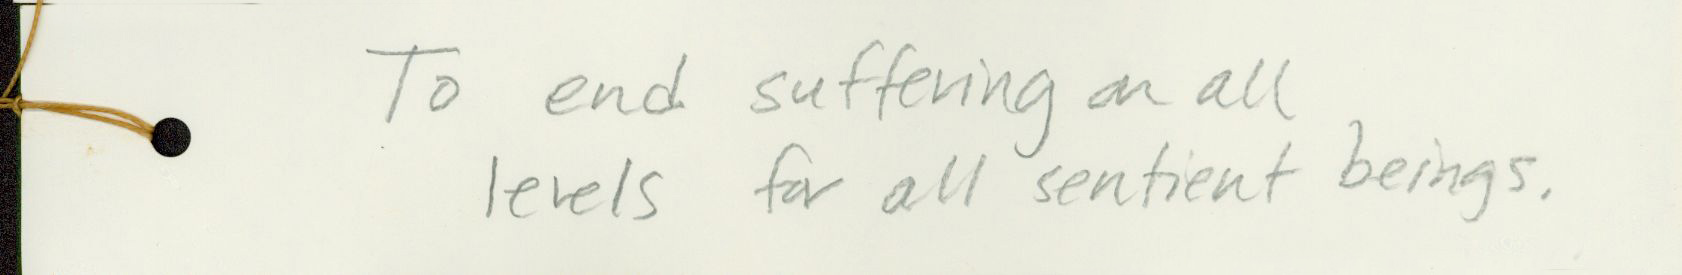 To end suffering on all
levels for all sentient beings.